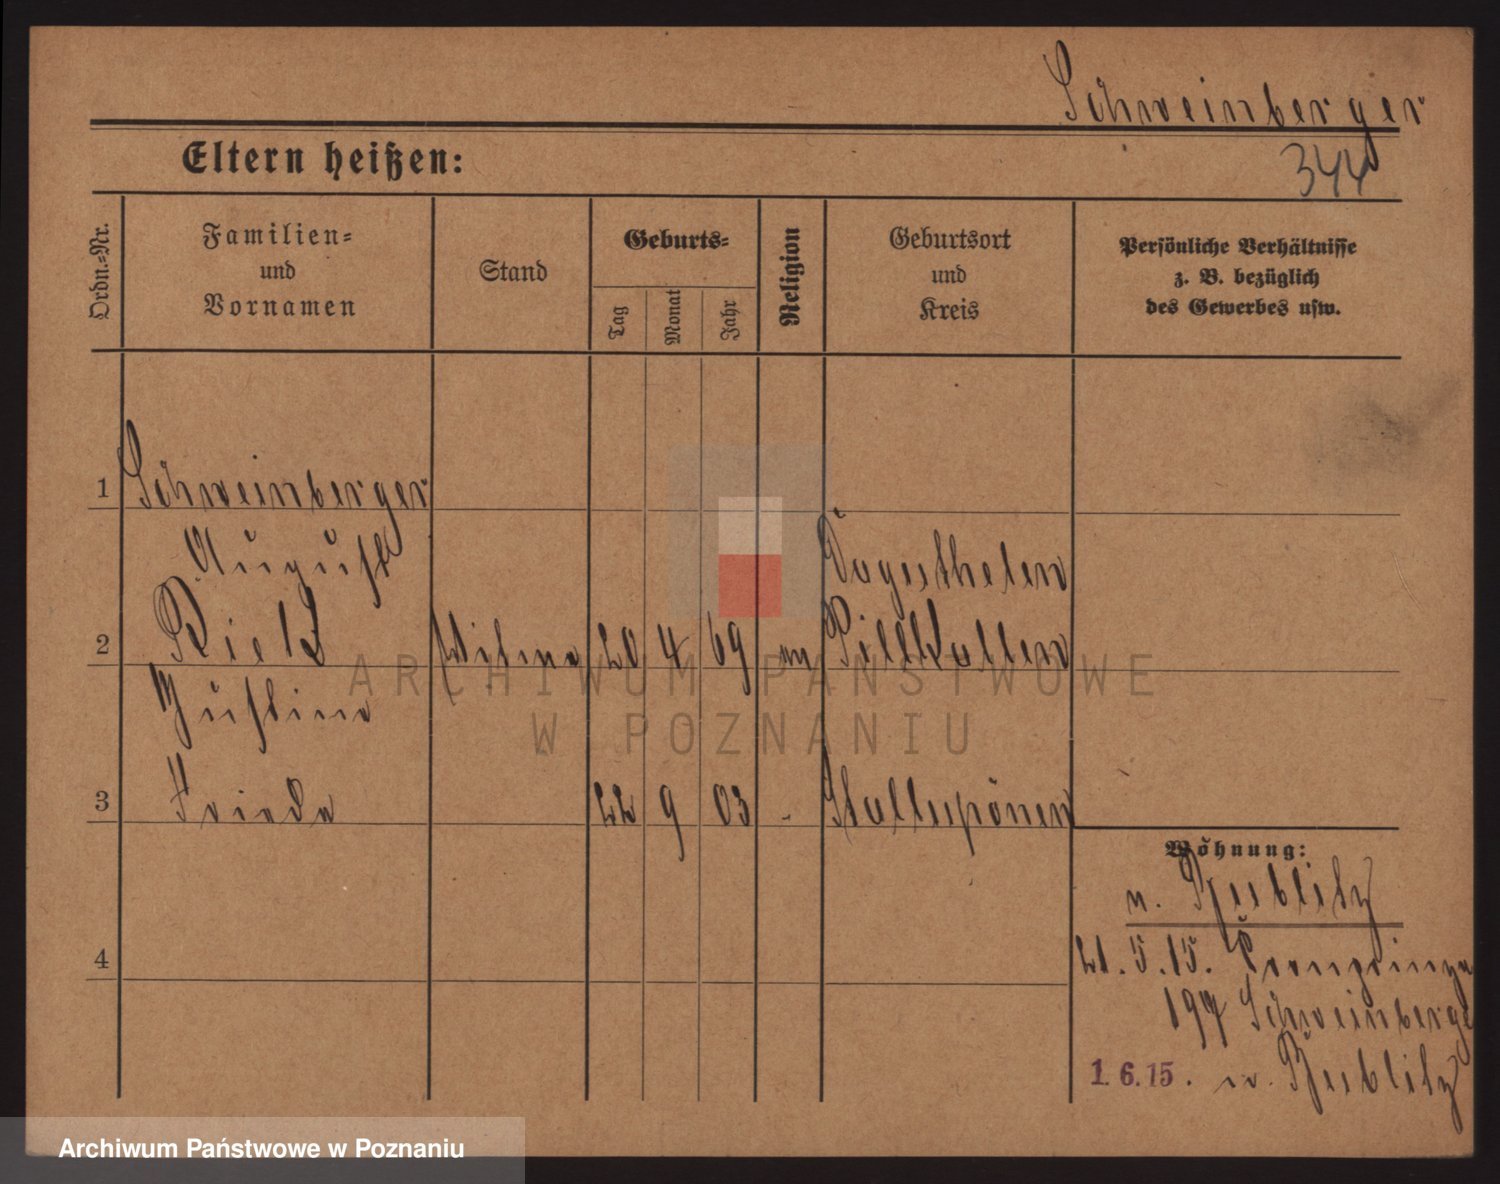 Schweinberger
344
Eltern heißen:
Ordn.-Nr.
Familien-
und
Vornamen
Stand
Geburts-
Tag
Monat
Jahr
Religion
Geburtsort
und
Kreis
Persönliche Verhältnisse
z. B. bezüglich
des Gewerbes usw.
1 Schweinberger
August
2 20 4 69 Pillkallen
Justine
3 Frieda 22 9 03 - Stallupönen
Wohnung:
n.
4
21. 5. 15.
197 Schweinberger
1. 6. 15.
ARCHIWUM PAŃSTWOWE
W POZNANIU
Archiwum Państwowe w Poznaniu